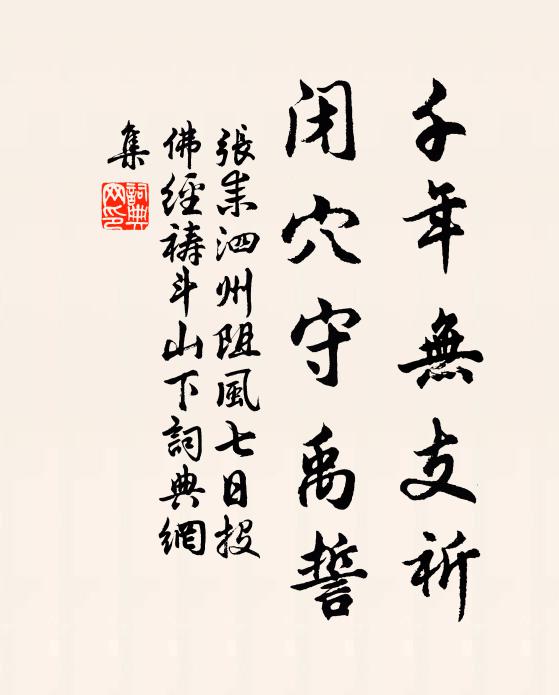 千年無支祈
闭穴守禹誓
張耒泗州阻風七日投
佛經禱斗山下詞典網
集
詞典
网印